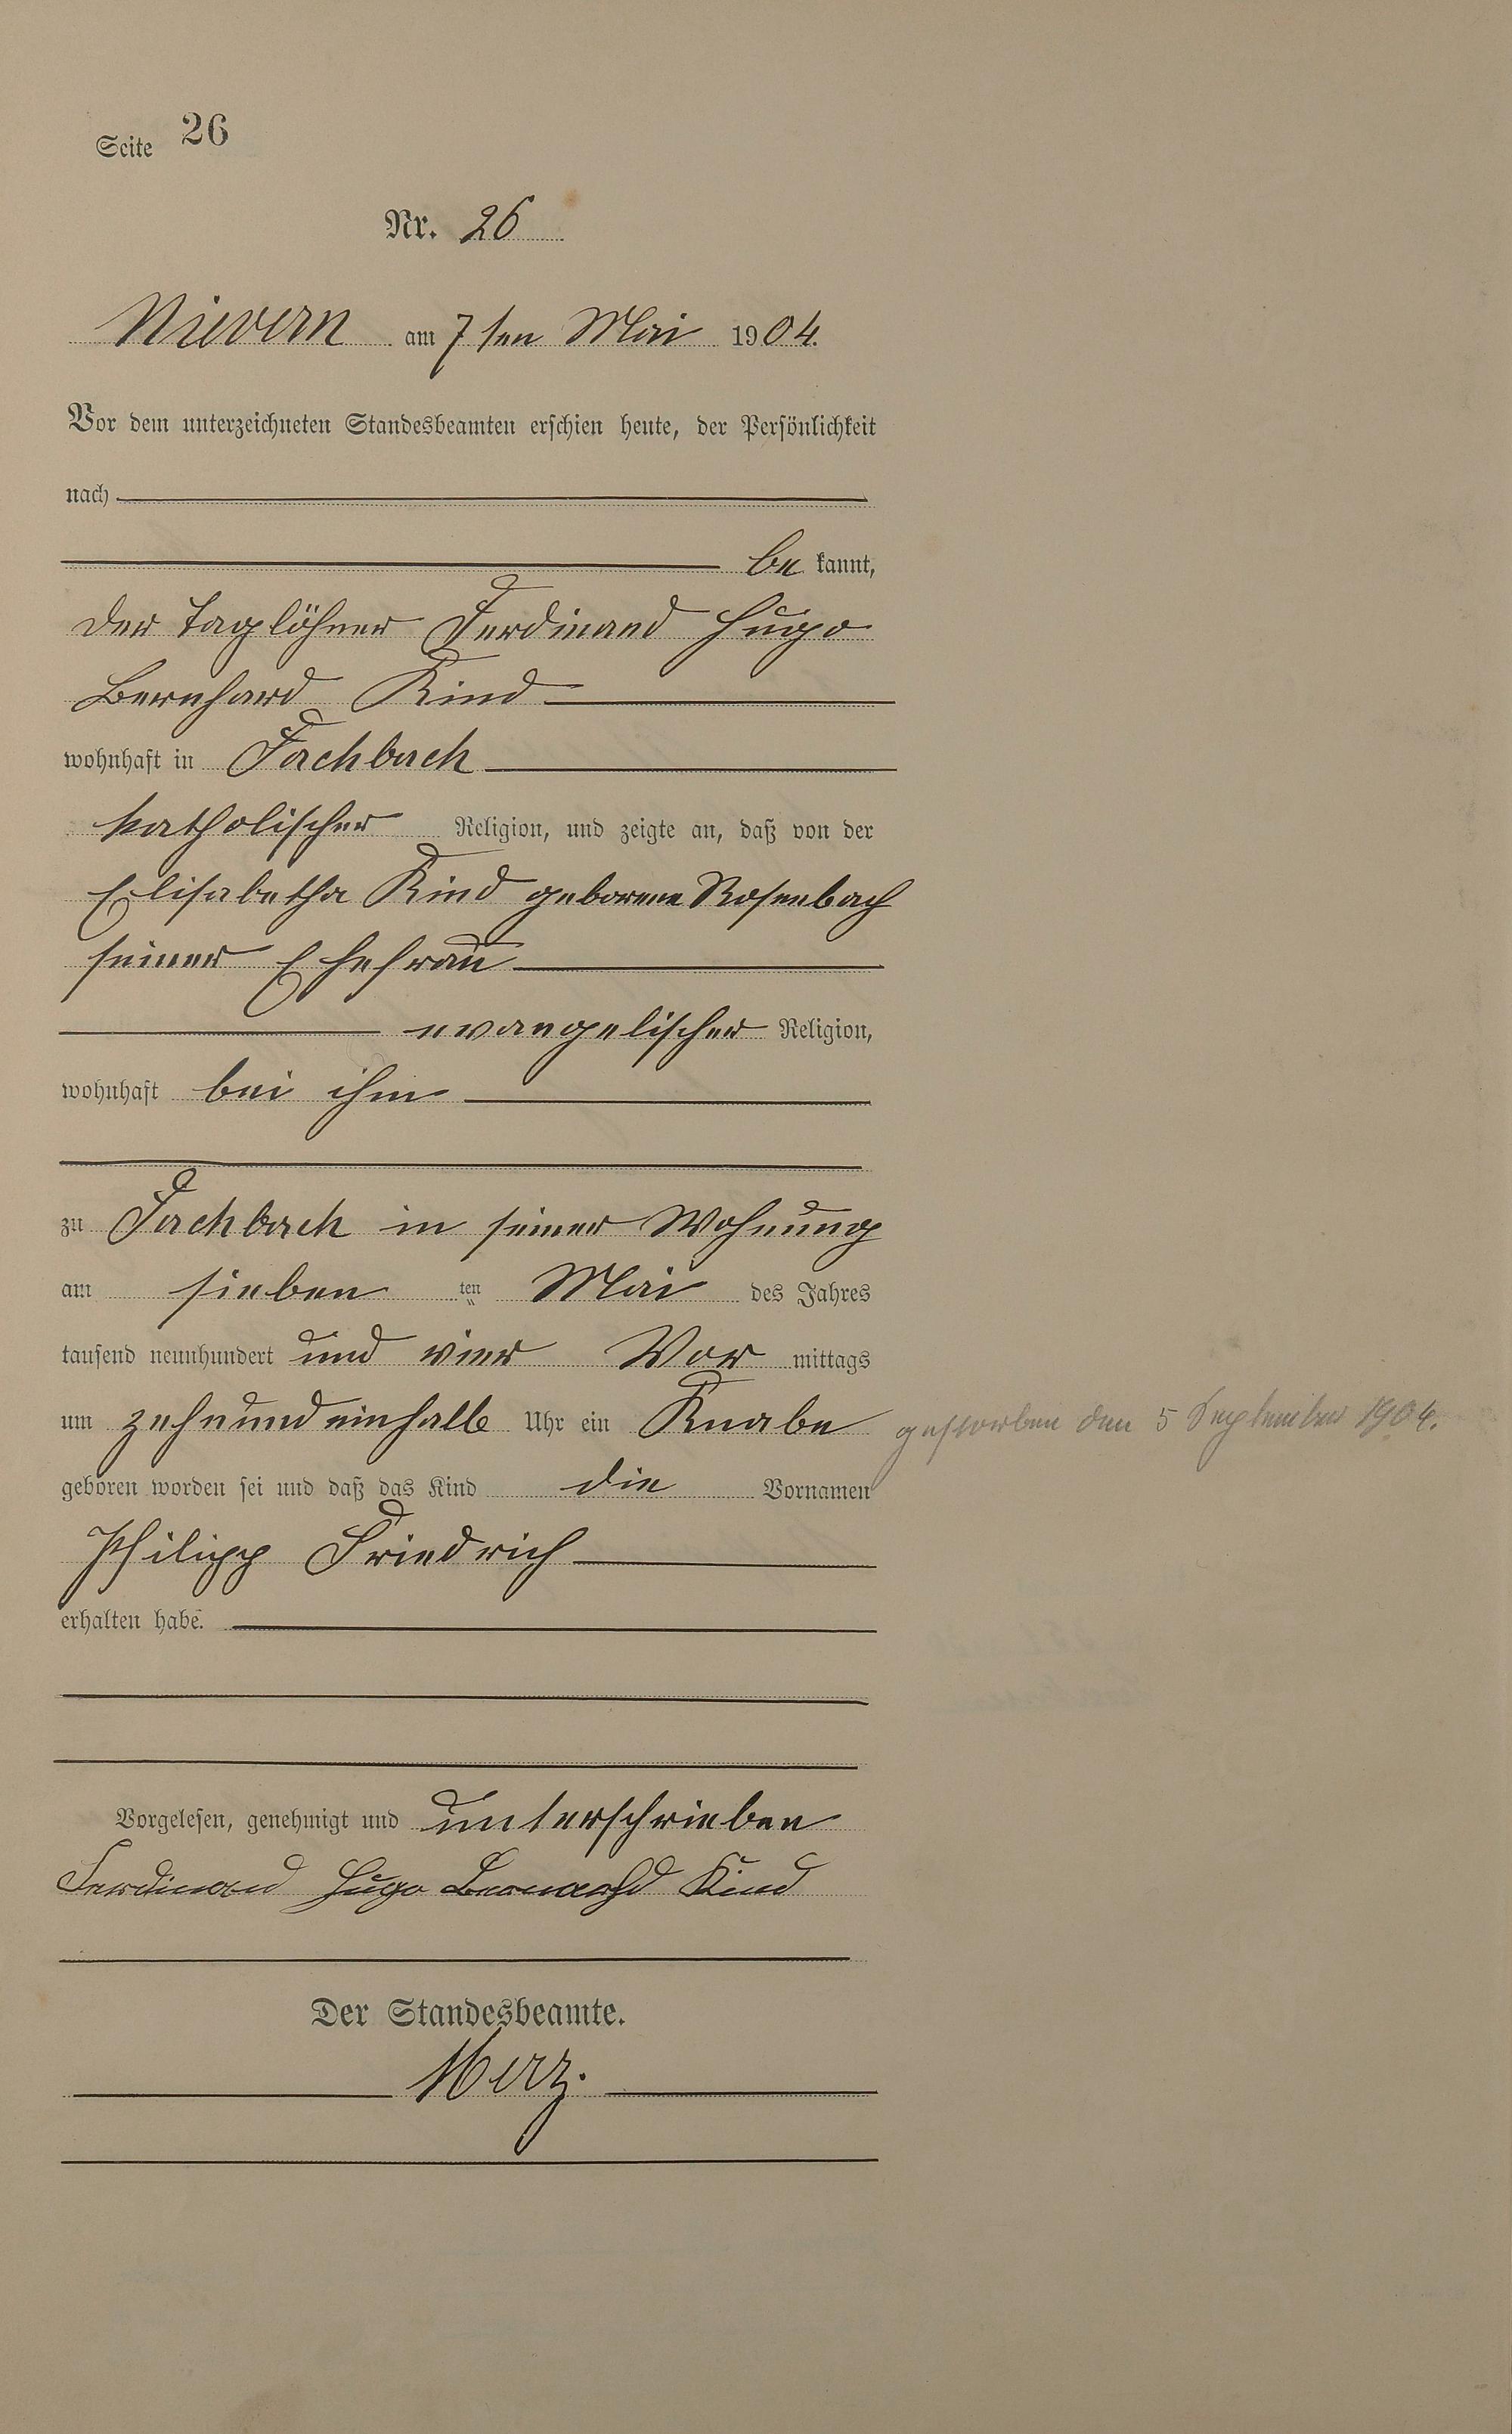 Seite 26
Nr. 26
Nievern am 7ten Mai 1904.
Vor dem unterzeichneten Standesbeamten erschien heute, der Persönlichkeit
nach
be kannt,
der Taglöhner Ferdinand Hugo
Bernhard Kind
wohnhaft in Fachbach
katholischer Religion, und zeigte an, daß von der
Elisabetha Kind geborene Rosenbach
seiner Ehefrau
evangelischer Religion,
wohnhaft bei ihm
zu Fachbach in seiner Wohnung
am sieben ten Mai des Jahres
tausend neunhundert und vier Vor mittags
um zehnundeinhalb Uhr ein Knabe gestorben den 5 September 1904.
geboren worden sei und daß das Kind die Vornamen
Philipp Friedrich
erhalten habe.
Vorgelesen, genehmigt und unterschrieben
Ferdinand Hugo Bernarhd Kind
Der Standesbeamte.
Merz.